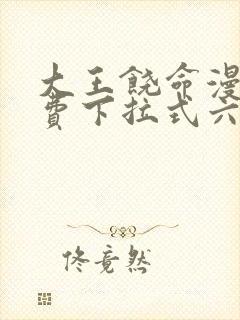 大王饶命漫
费下拉式六
佟竟然